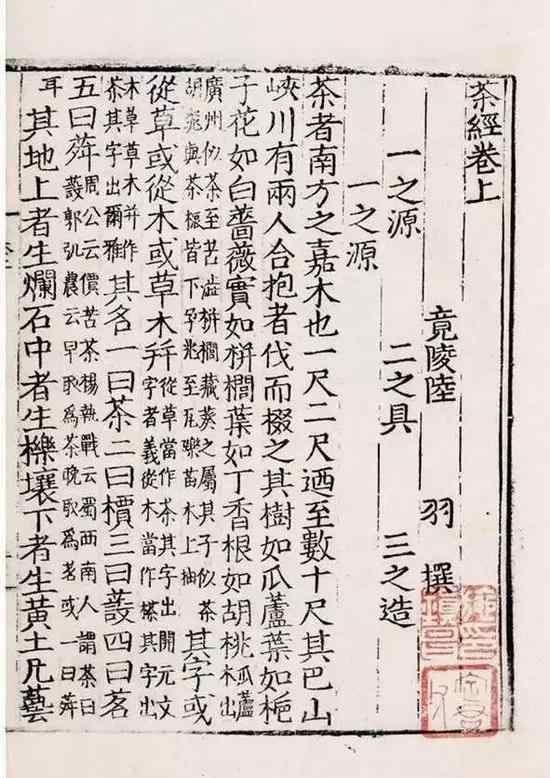 茶經卷上
竟陵陸 羽 撰
一之源 二之具 三之造
一之源
茶者南方之嘉木也一尺二尺廼至數十尺其巴山
峽川有兩人合抱者伐而掇之其樹如瓜蘆葉如梔
子花如白薔薇實如栟櫚葉如丁香根如胡桃瓜蘆木出
廣州似茶至苦澁栟櫚蒲葵之屬其子似茶
胡桃與茶根皆下孕兆至瓦礫苗木上抽
其字或
從草或從木或草木并
從草當作茶其字出開元文
字者義從木當作其字出
木草草木并作
茶其字出爾雅
其名一曰茶二曰檟三曰蔎四曰茗
五曰荈
周公云檟苦茶楊執戟云蜀西南人謂茶曰
蔎郭弘農云早取為茶晚取為茗或一曰荈
耳其地上者生爛石中者生櫟壤下者生黃土凡藝